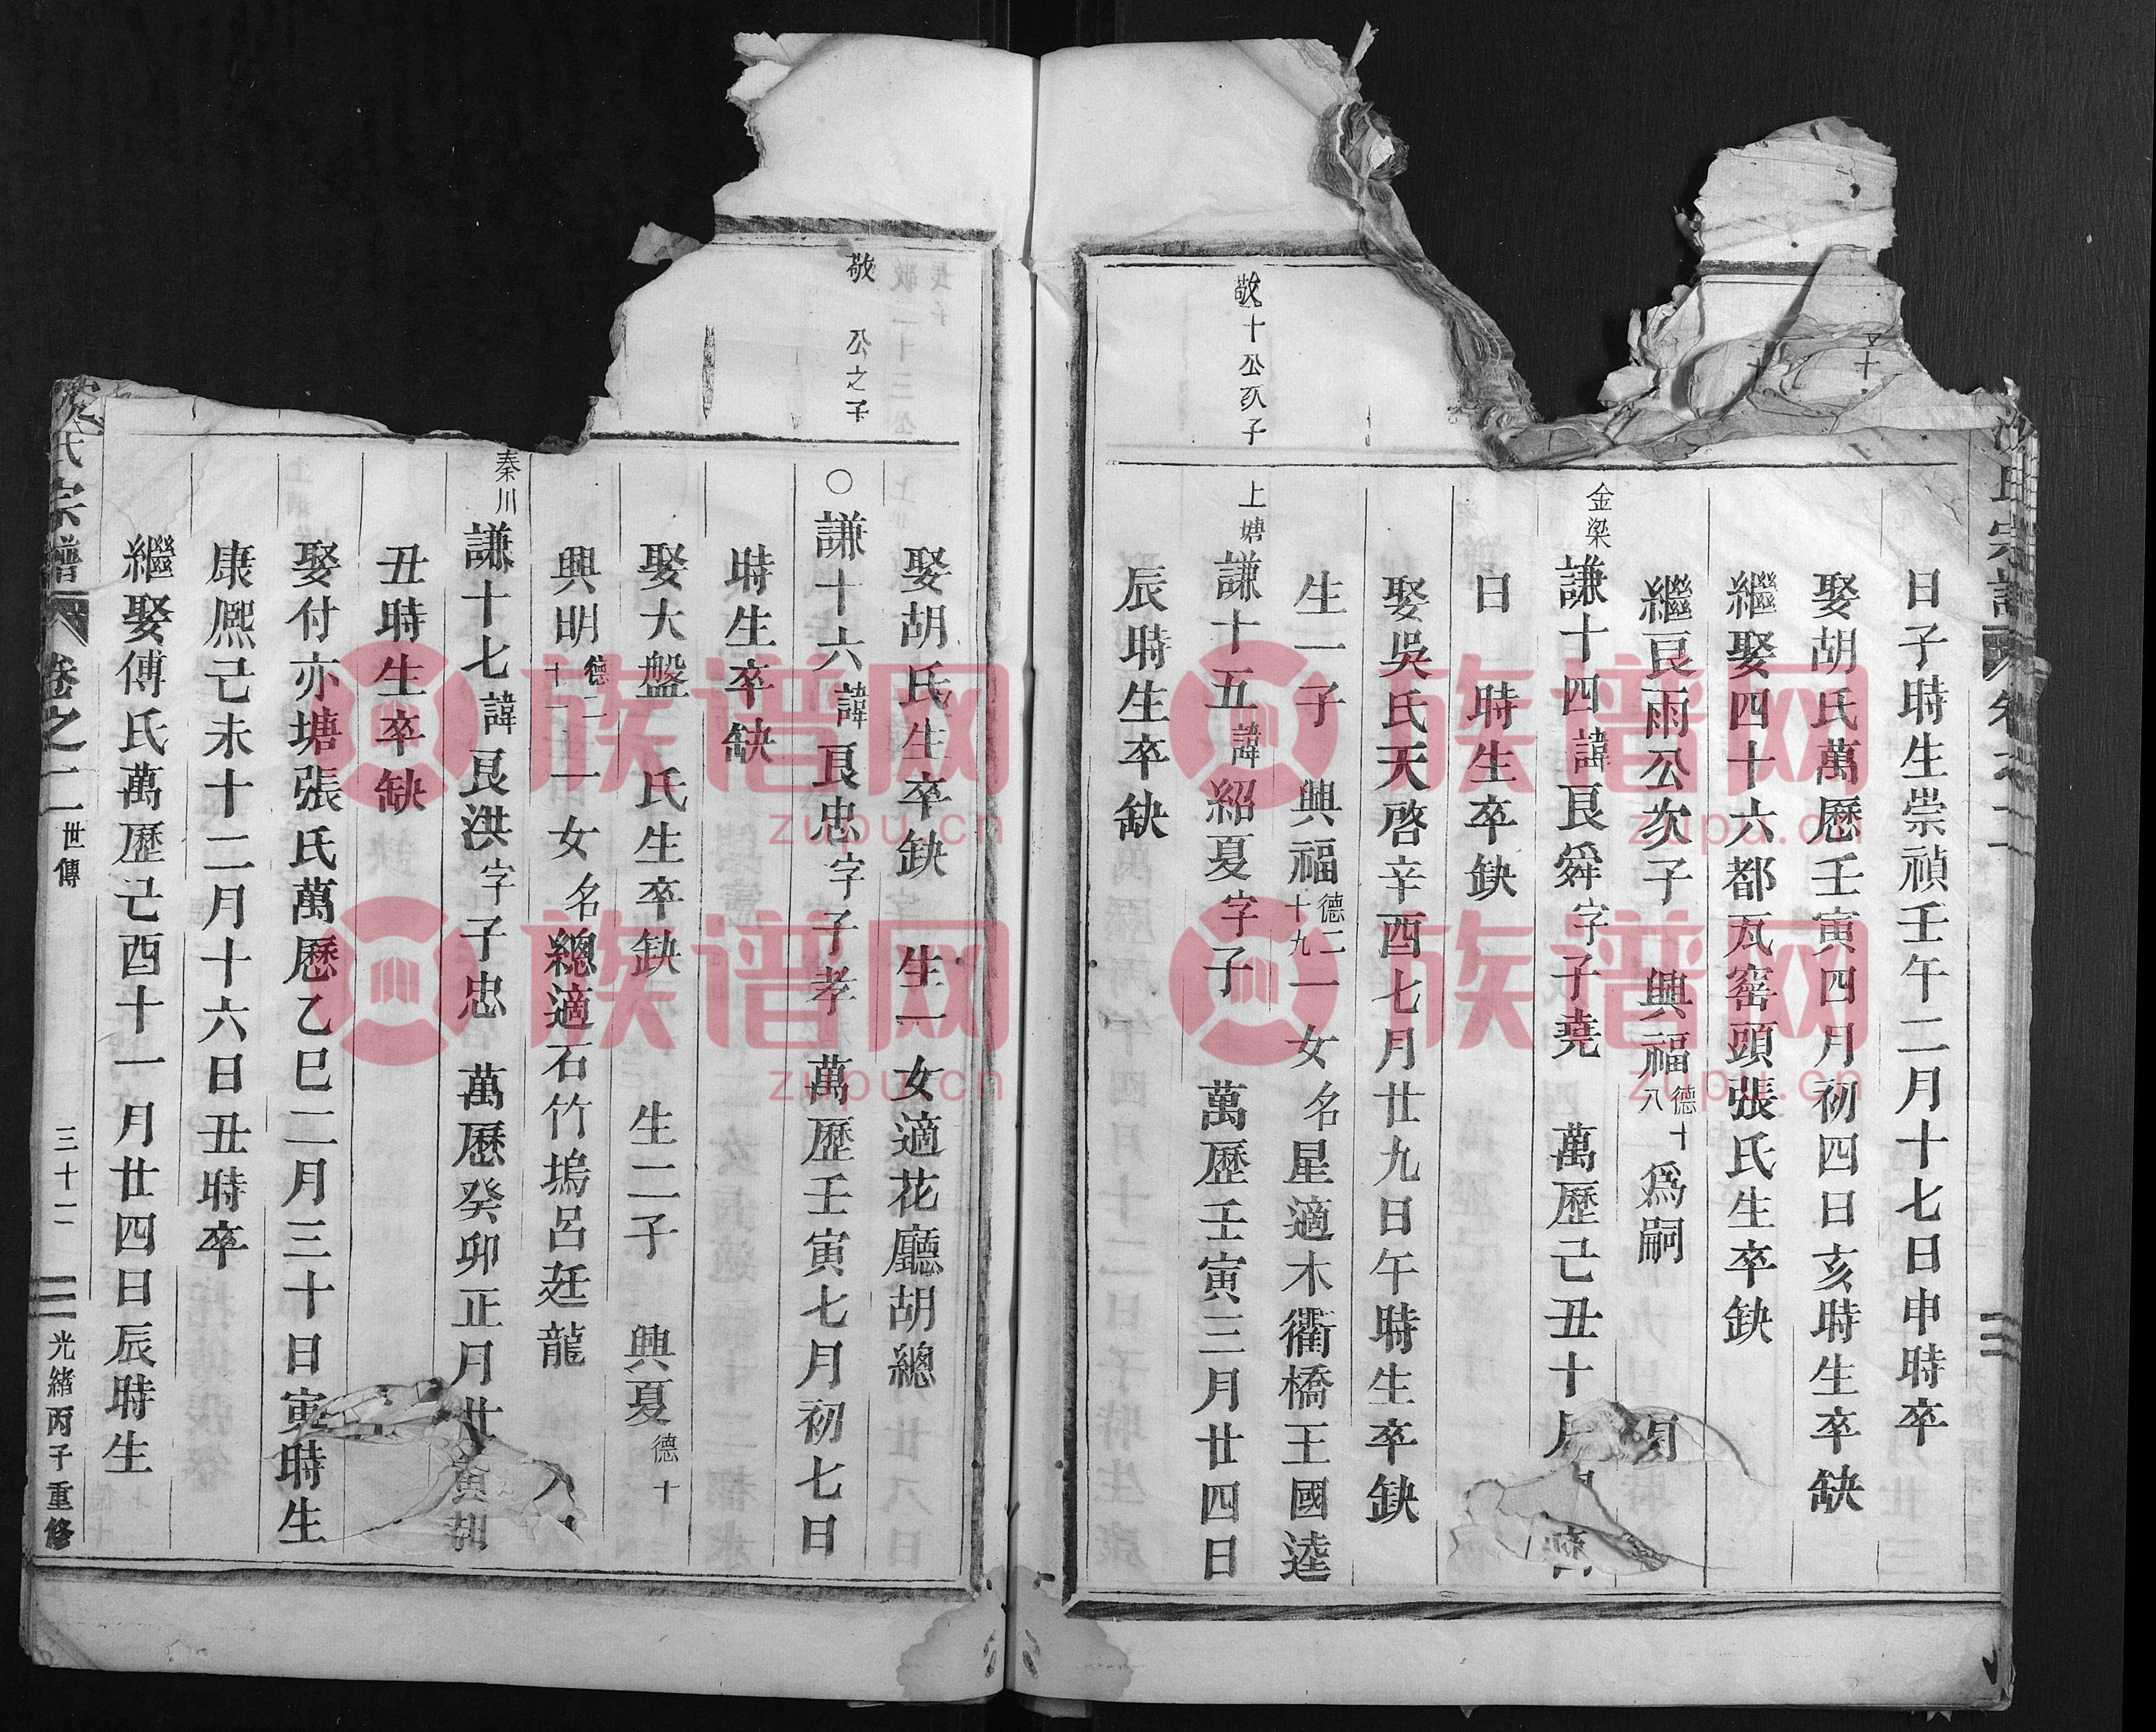 日子時生崇禎壬午二月十七日申時卒
娶胡氏萬曆壬寅四月初四日亥時生卒缺
繼娶四十六都瓦窰頭張氏生卒缺
繼良雨公次子 興福德十八爲嗣
金梁 謙十四諱良舜字子堯 萬歷己丑十月
日 時生卒缺
娶吳氏天啓辛酉七月廿九日午時生卒缺
生一子 興福德二十九 一女名星適木衢橋王國逵
敬十公次子
上塘 謙十五諱紹夏字子 萬歷壬寅三月廿四日
辰時生卒缺
娶胡氏生卒缺 生一女適花廳胡總
敬 公之子
○謙十六諱良忠字子孝 萬歷壬寅七月初七日
時生卒缺
娶大盤 氏生卒缺 生二子 興夏德十
興明德二十一 一女名總適石竹塢呂廷龍
秦川 謙十七諱良洪字子忠 萬曆癸卯正月廿
丑時生卒缺
娶付亦塘張氏萬曆乙巳二月三十日寅時生
康熈己未十二月十六日丑時卒
繼娶傅氏萬歷己酉十一月廿四日辰時生
氏宗譜 卷之二 世傳 三十二 光緒丙子重修
族谱网
zupu.cn
族谱网
zupu.cn
族谱网
zupu.cn
族谱网
zupu.cn